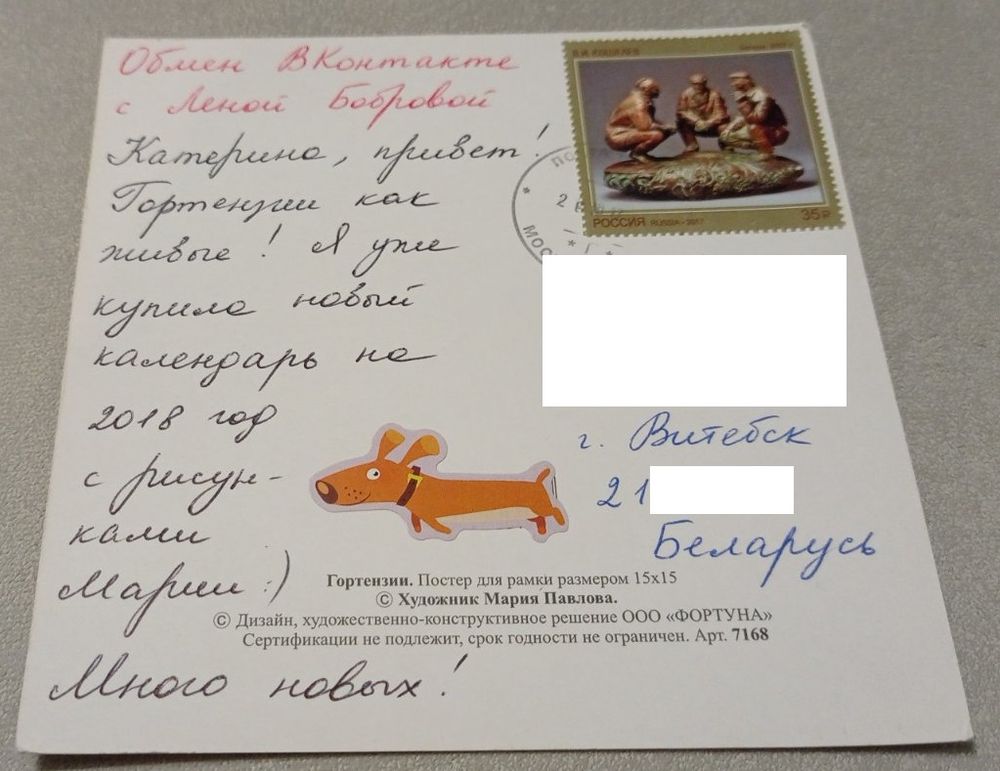 Обмен ВКонтакте
с Леной Бобровой
Катерина, привет!
Гортензии как
живые! Я уже
купила новый
календарь на
2018 год
с рисун-
ками
Марии :)
Много новых!
РОССИЯ RUSSIA • 2017 35 ₽
МОС
г. Витебск
21
Беларусь
Гортензии. Постер для рамки размером 15х15
© Художник Мария Павлова.
© Дизайн, художественно-конструктивное решение ООО «ФОРТУНА»
Сертификации не подлежит, срок годности не ограничен. Арт. 7168